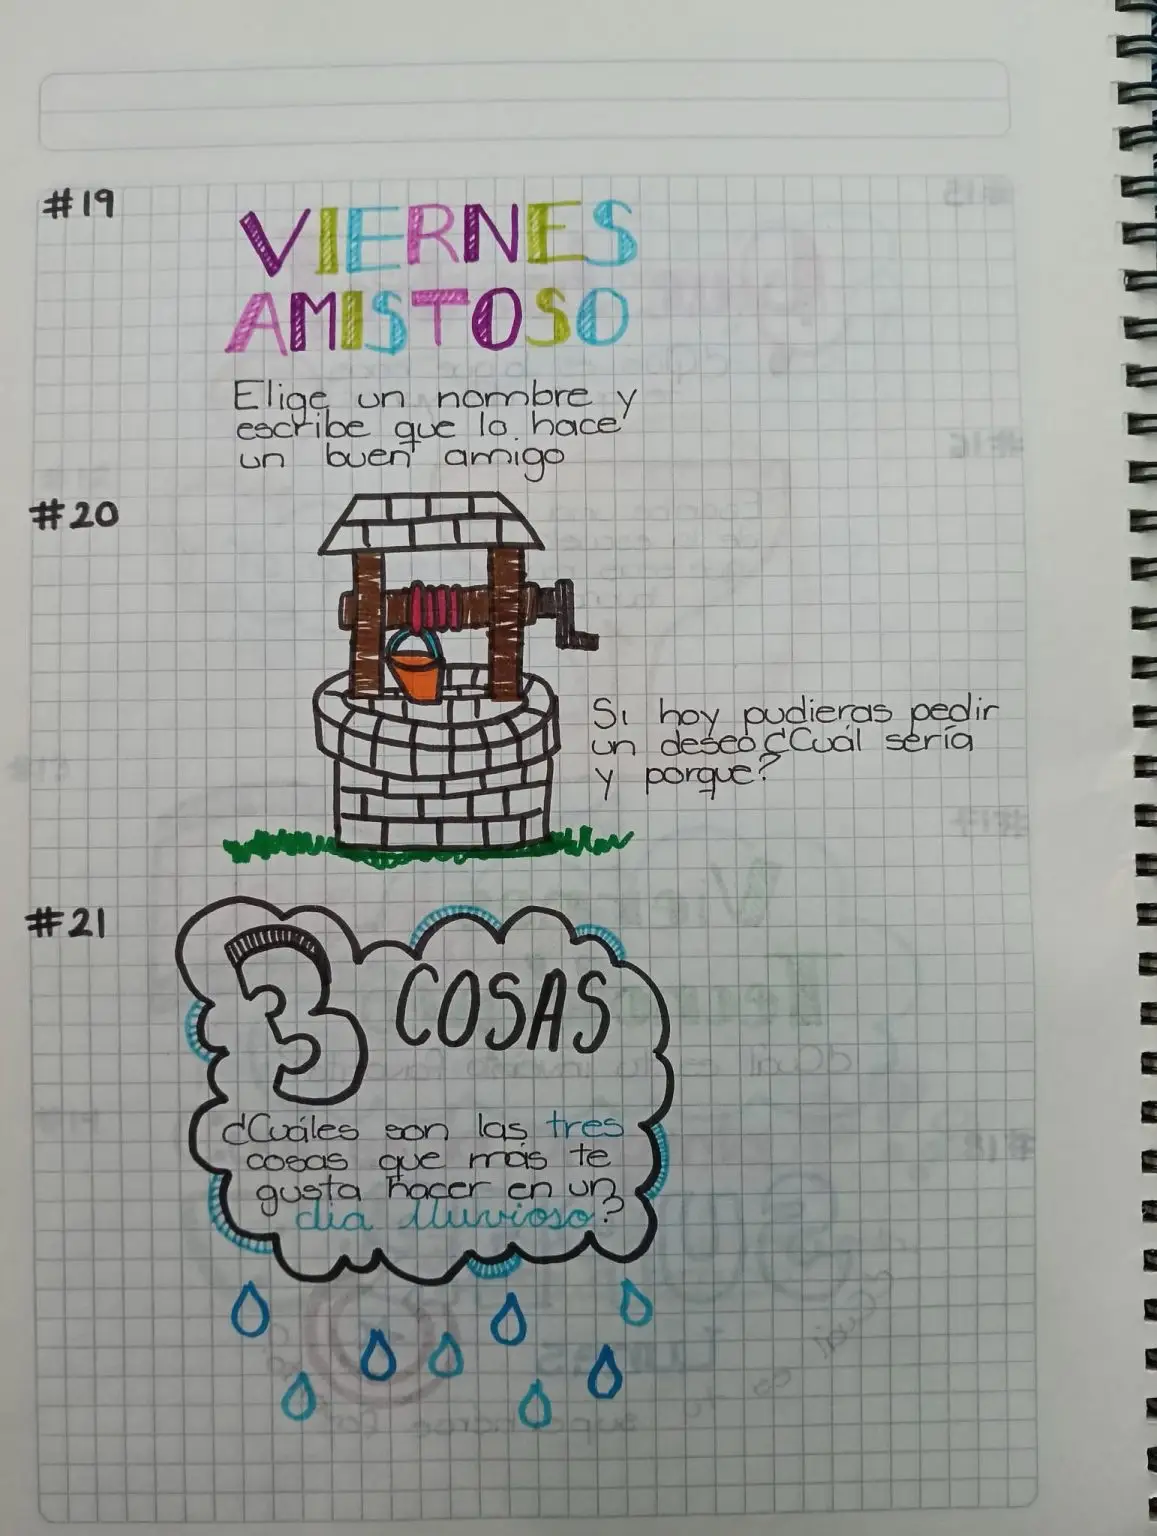 #19
VIERNES
AMISTOSO
Elige un nombre y
escribe que lo hace
un buen amigo
#20
Si hoy pudieras pedir
un deseo ¿Cuál sería
y porque?
#21
3 COSAS
¿Cuáles son las tres
cosas que más te
gusta hacer en un
dia lluvioso?